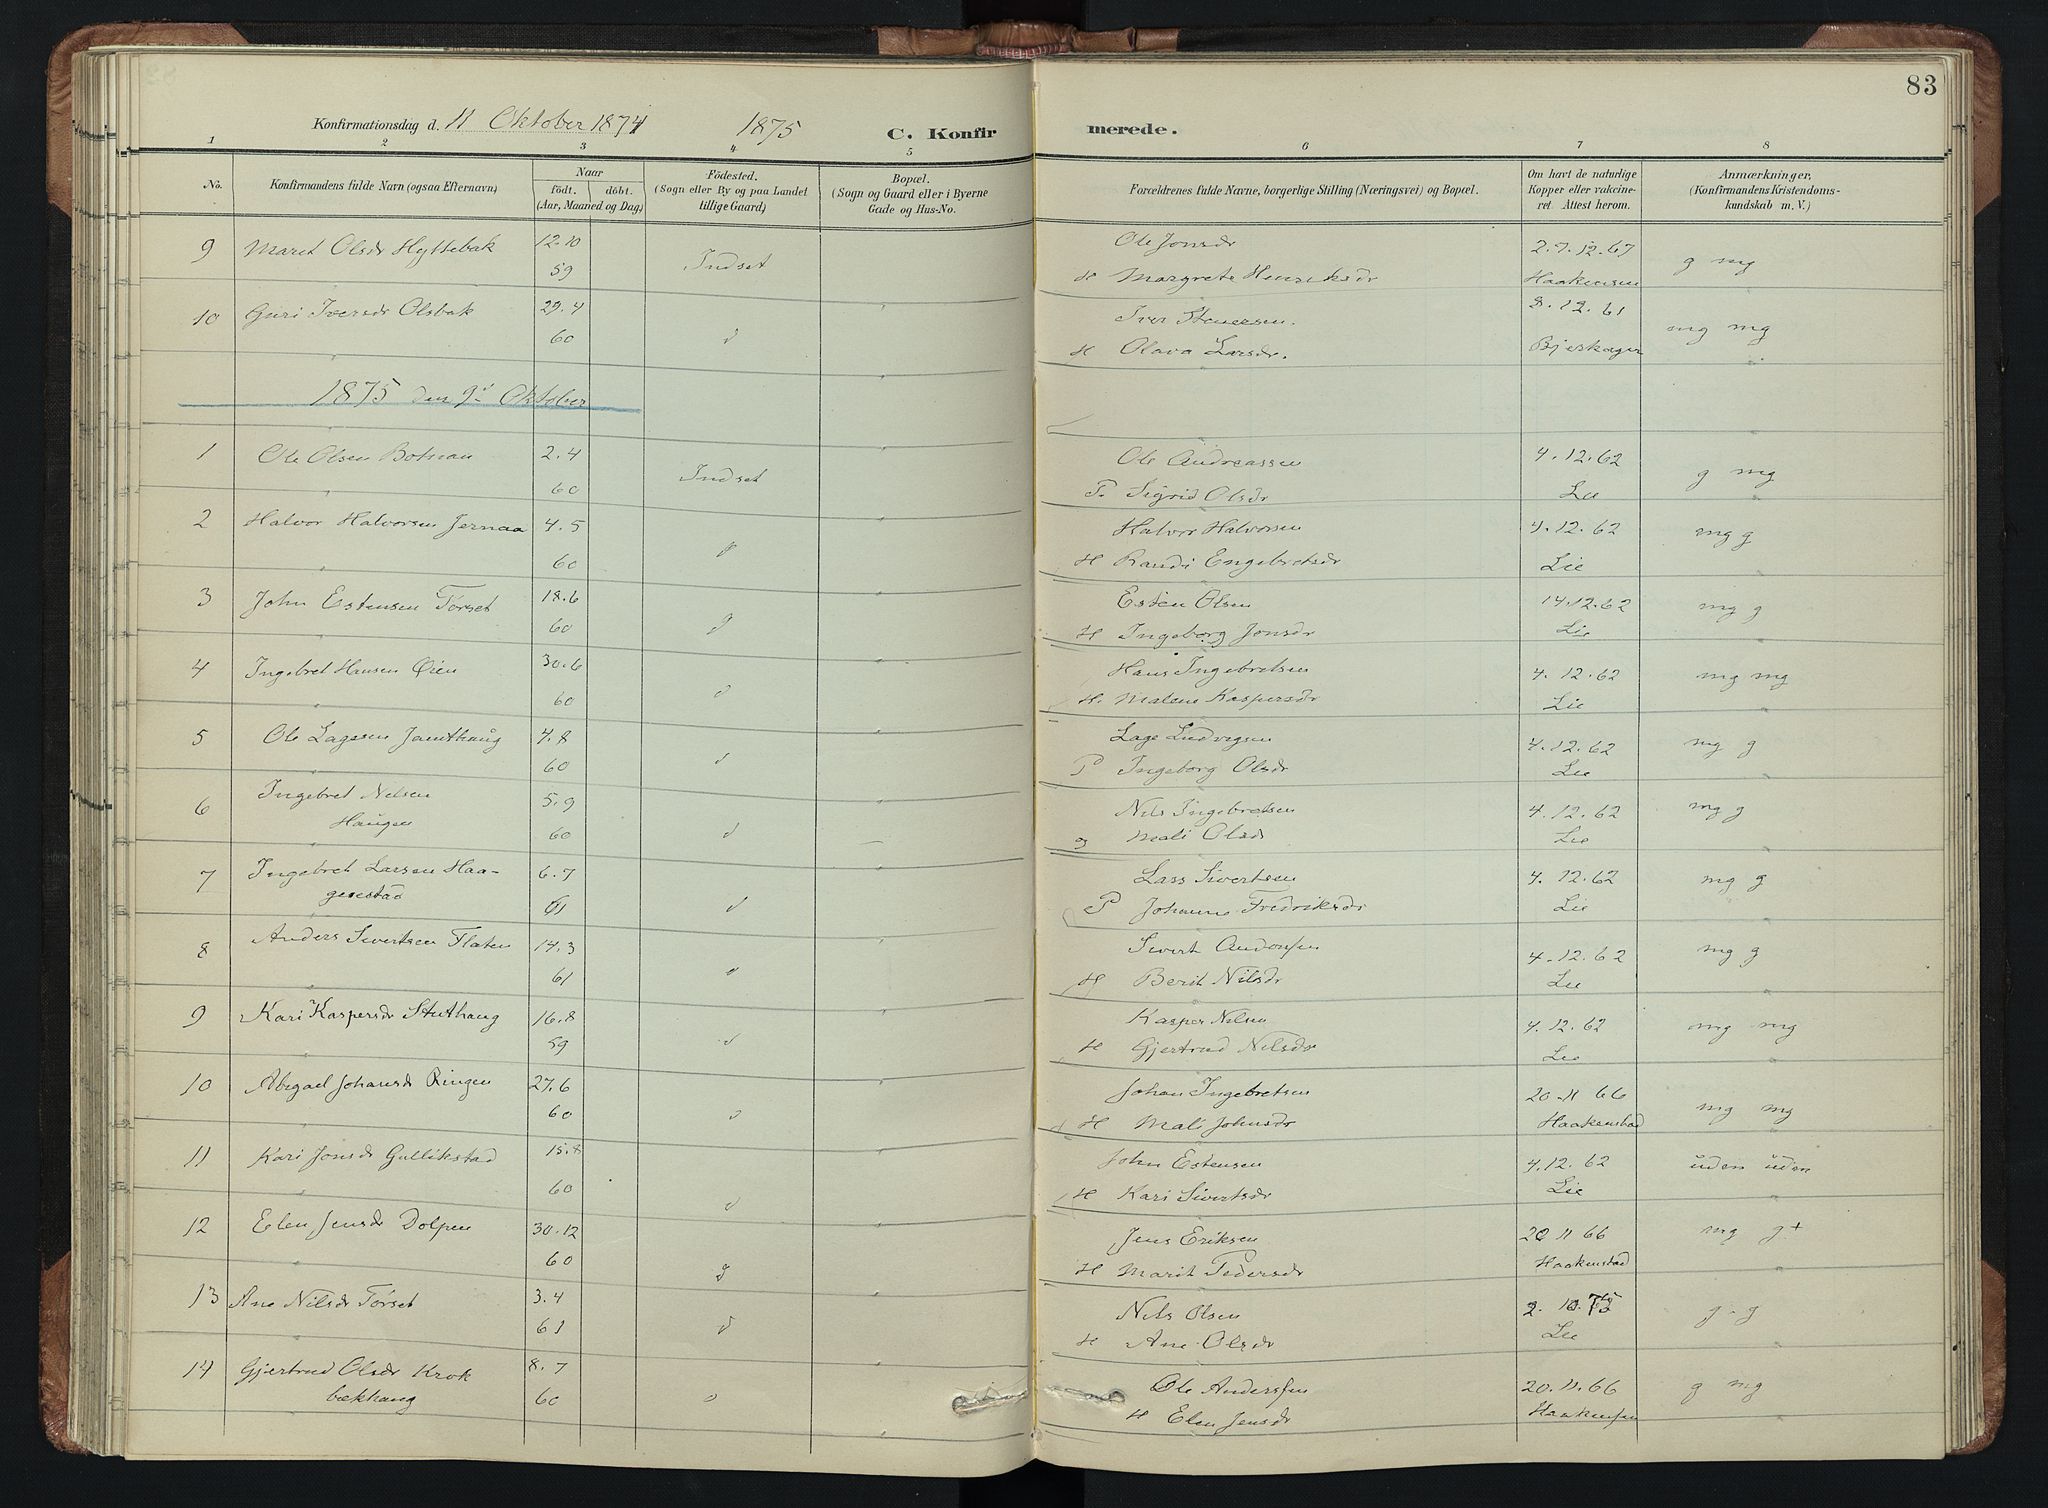 83
Konfirmationsdag d. 11 Oktober 1874 1875 C. Konfirmerede.
1 2 3 4 5 6 7 8
No.
Konfirmandens fulde Navn (ogsaa Efternavn)
Naar
födt. döbt.
(Aar, Maaned og Dag)
Födested.
(Sogn eller By og paa Landet
tillige Gaard)
Bopæl.
(Sogn og Gaard eller i Byerne
Gade og Hus-No.
Forældrenes fulde Navne, borgerlige Stilling (Næringsvei) og Bopæl.
Om havt de naturlige
Kopper eller vakcine-
ret. Attest herom.
Anmærkninger,
(Konfirmandens Kristendoms-
kundskab m. V.)
9 Maret Olsdr Hyttebak 12.10 Indset Ole Jonsdr 27.12.67 g mg
59 H Margrete Henriksdr Haakensen
10 Guri Iversdr Olsbak 29.4 d Iver Stenersen. 3.12.61 mg mg
60 H Olava Larsdr. Bjerkager
1875 den 9d Oktober
1 Ole Olsen Botnan 2.4 Indset Ole Andreassen 4.12.62 g mg
60 P. Sigrid Olsdr Lie
2 Halvor Halvorsen Jernaa 4.5 d Halvor Halvorsen 4.12.62 mg g
60 H Randi Engebretsdr Lie
3 John Estensen Törset 18.6 d Esten Olsen 14.12.62 mg g
60 H Ingeborg Jonsdr Lie
4 Ingebret Hansen Øien 30.6 d Hans Ingebretsen 4.12.62 mg mg
60 H. Malene Kaspersdr Lie
5 Ole Lagesen Jamthaug 4.8 d Lage Ludvigsen 4.12.62 mg g
60 P Ingeborg Olsdr Lie
6 Ingebret Nelsen 5.9 d Nils Ingebretsen 4.12.62 mg g
Haugen 60 g Mali Olsd Lie
7 Ingebret Larsen Haa- 6.7 d Lars Sivertsen 4.12.62 mg g
genestad 61 P Johanne Fredriksdr Lie
8 Anders Sivertsen Flaten 14.3 d Sivert Andersen 4.12.62 mg g
61 H Berit Nilsdr Lie
9 Kari Kaspersdr Stuthaug 16.8 d Kasper Nilsen 4.12.62 mg mg
59 H Gjertrud Nilsdr Lie
10 Abigael Johansdr Ringen 27.6 d Johan Ingebretsen 20-11 66 mg mg
60 H Mali Johnsdr Haakenstad
11 Kari Jonsdr Gullikstad 15.8 d John Estensen 4.12.62 uden uden
60 H Kari Sivertsdr Lie
12 Elen Jensdr Dolpen 30.12 d Jens Eriksen 20 11 66 mg g+
60 H Marit Pedersdr Haakenstad
13 Ane Nilsdr Törset 3.4 d Nils Olsen 2.10.75 g-g
61 H Ane Olsdr Lie
14 Gjertrud Olsdr Krok 8.7 d Ole Anderssen 20.11.66 g mg
bækhaug 60 H Elen Jensdr Haakensen